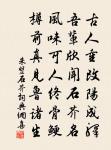 古人重改陽城驛
吾輩欣聞石芥名
風味可人終骨鯁
樽前真見魯諸生
朱熹石芥詞典網